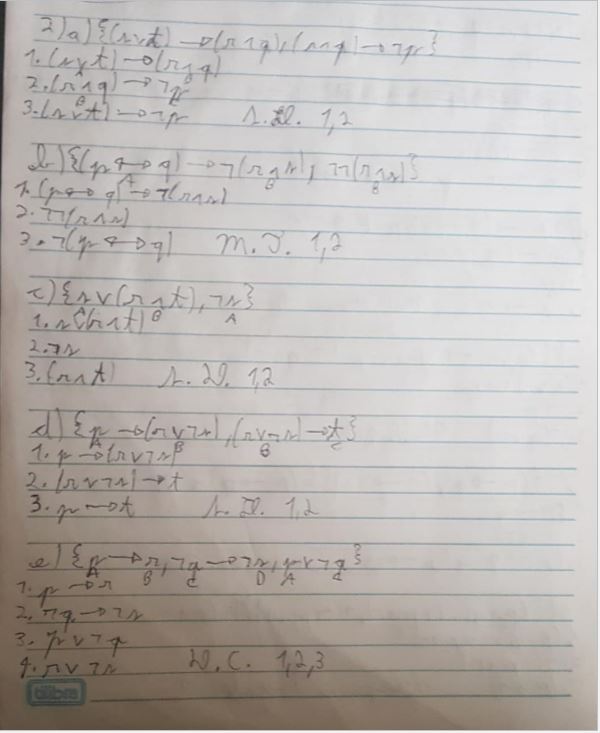 2) a) {(s∨t) → (r∧q), (r∧q) → ¬p}
1. (s∨t) → (r∧q)
2. (r∧q) → ¬p
B
3. (s∨t) → ¬p S.H. 1,2
b) {(p ↔ q) → ¬(r∧s), ¬¬(r∧s)}
A B B
1. (p ↔ q) → ¬(r∧s)
2. ¬¬(r∧s)
3. ¬(p ↔ q) M.T. 1,2
c) {s∨(r∧t), ¬s}
A B A
1. s∨(r∧t)
2. ¬s
3. (r∧t) S.D. 1,2
d) {p → (r∨¬s), (r∨¬s) → t}
A B B C
1. p → (r∨¬s)
2. (r∨¬s) → t
3. p → t S.H. 1,2
e) {p → r, ¬q → ¬s, p∨¬q}
A B C D A C
1. p → r
2. ¬q → ¬s
3. p∨¬q
4. r∨¬s D.C. 1,2,3
tilibra